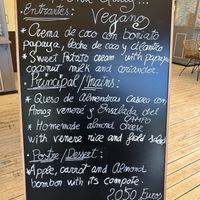 Entrantes:
Vegano
* Crema de coco con Boniato
papaya, leche de coco y cilantro
* Sweet Potato cream with papaya
coconut milk and coriander.
Principal / Mains:
* Queso de Almendras casero con
Arroz venere y Ensalada del
CAMPO
* Homemade almond cheese
with venere rice and field salad
Postre / Dessert:
* Apple, carrot and Almond
bombon with its compote.
20.50 Euros